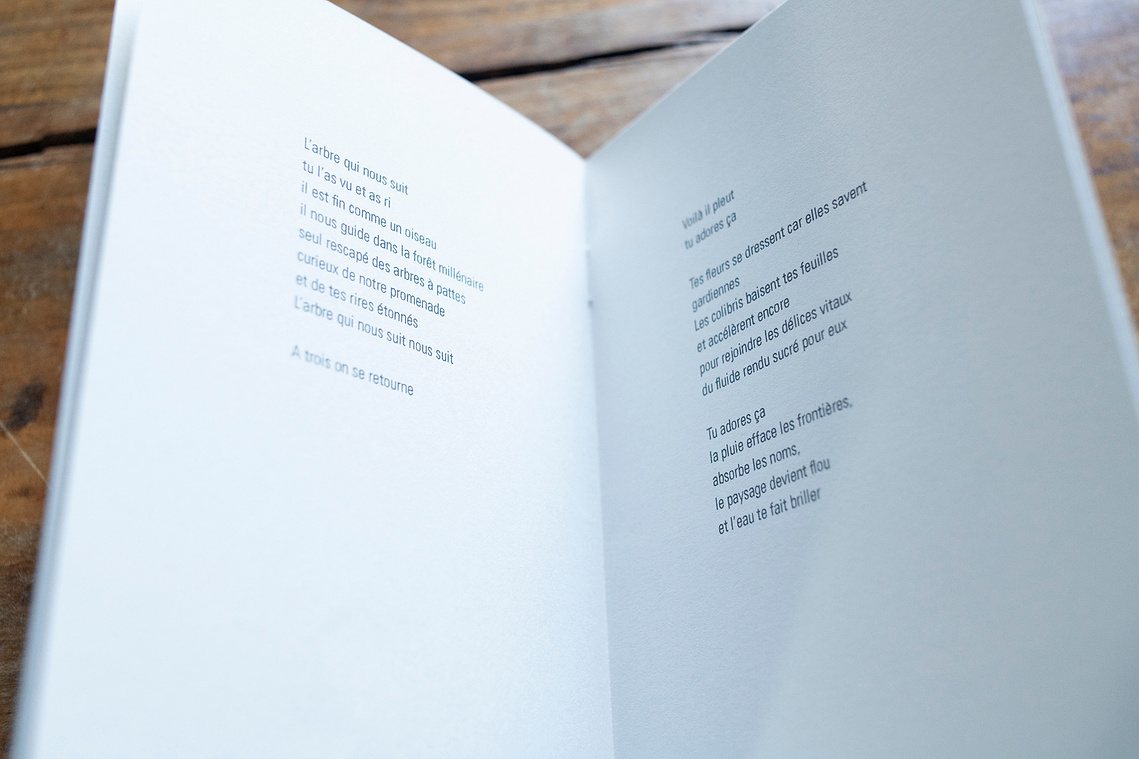 L'arbre qui nous suit
tu l'as vu et as ri
il est fin comme un oiseau
il nous guide dans la forêt millénaire
seul rescapé des arbres à pattes
curieux de notre promenade
et de tes rires étonnés
L'arbre qui nous suit nous suit
A trois on se retourne
Voilà il pleut
tu adores ça
Tes fleurs se dressent car elles savent
gardiennes
Les colibris baisent tes feuilles
et accélèrent encore
pour rejoindre les délices vitaux
du fluide rendu sucré pour eux
Tu adores ça
la pluie efface les frontières,
absorbe les noms,
le paysage devient flou
et l'eau te fait briller